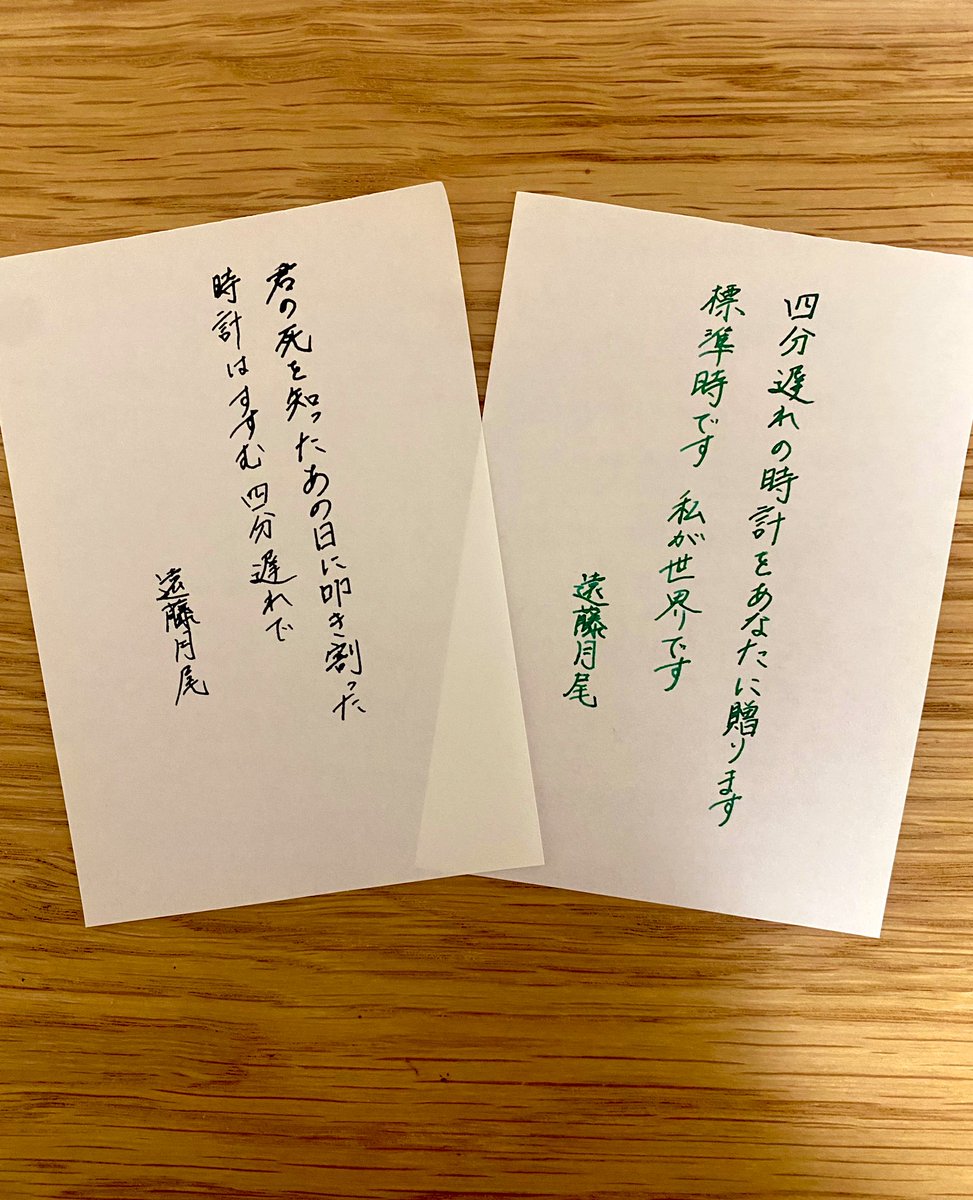 四分遅れの時計をあなたに贈ります
標準時です 私が世界です
遠藤月尾
君の死を知ったあの日に叩き割った
時計はすすむ 四分遅れで
遠藤月尾